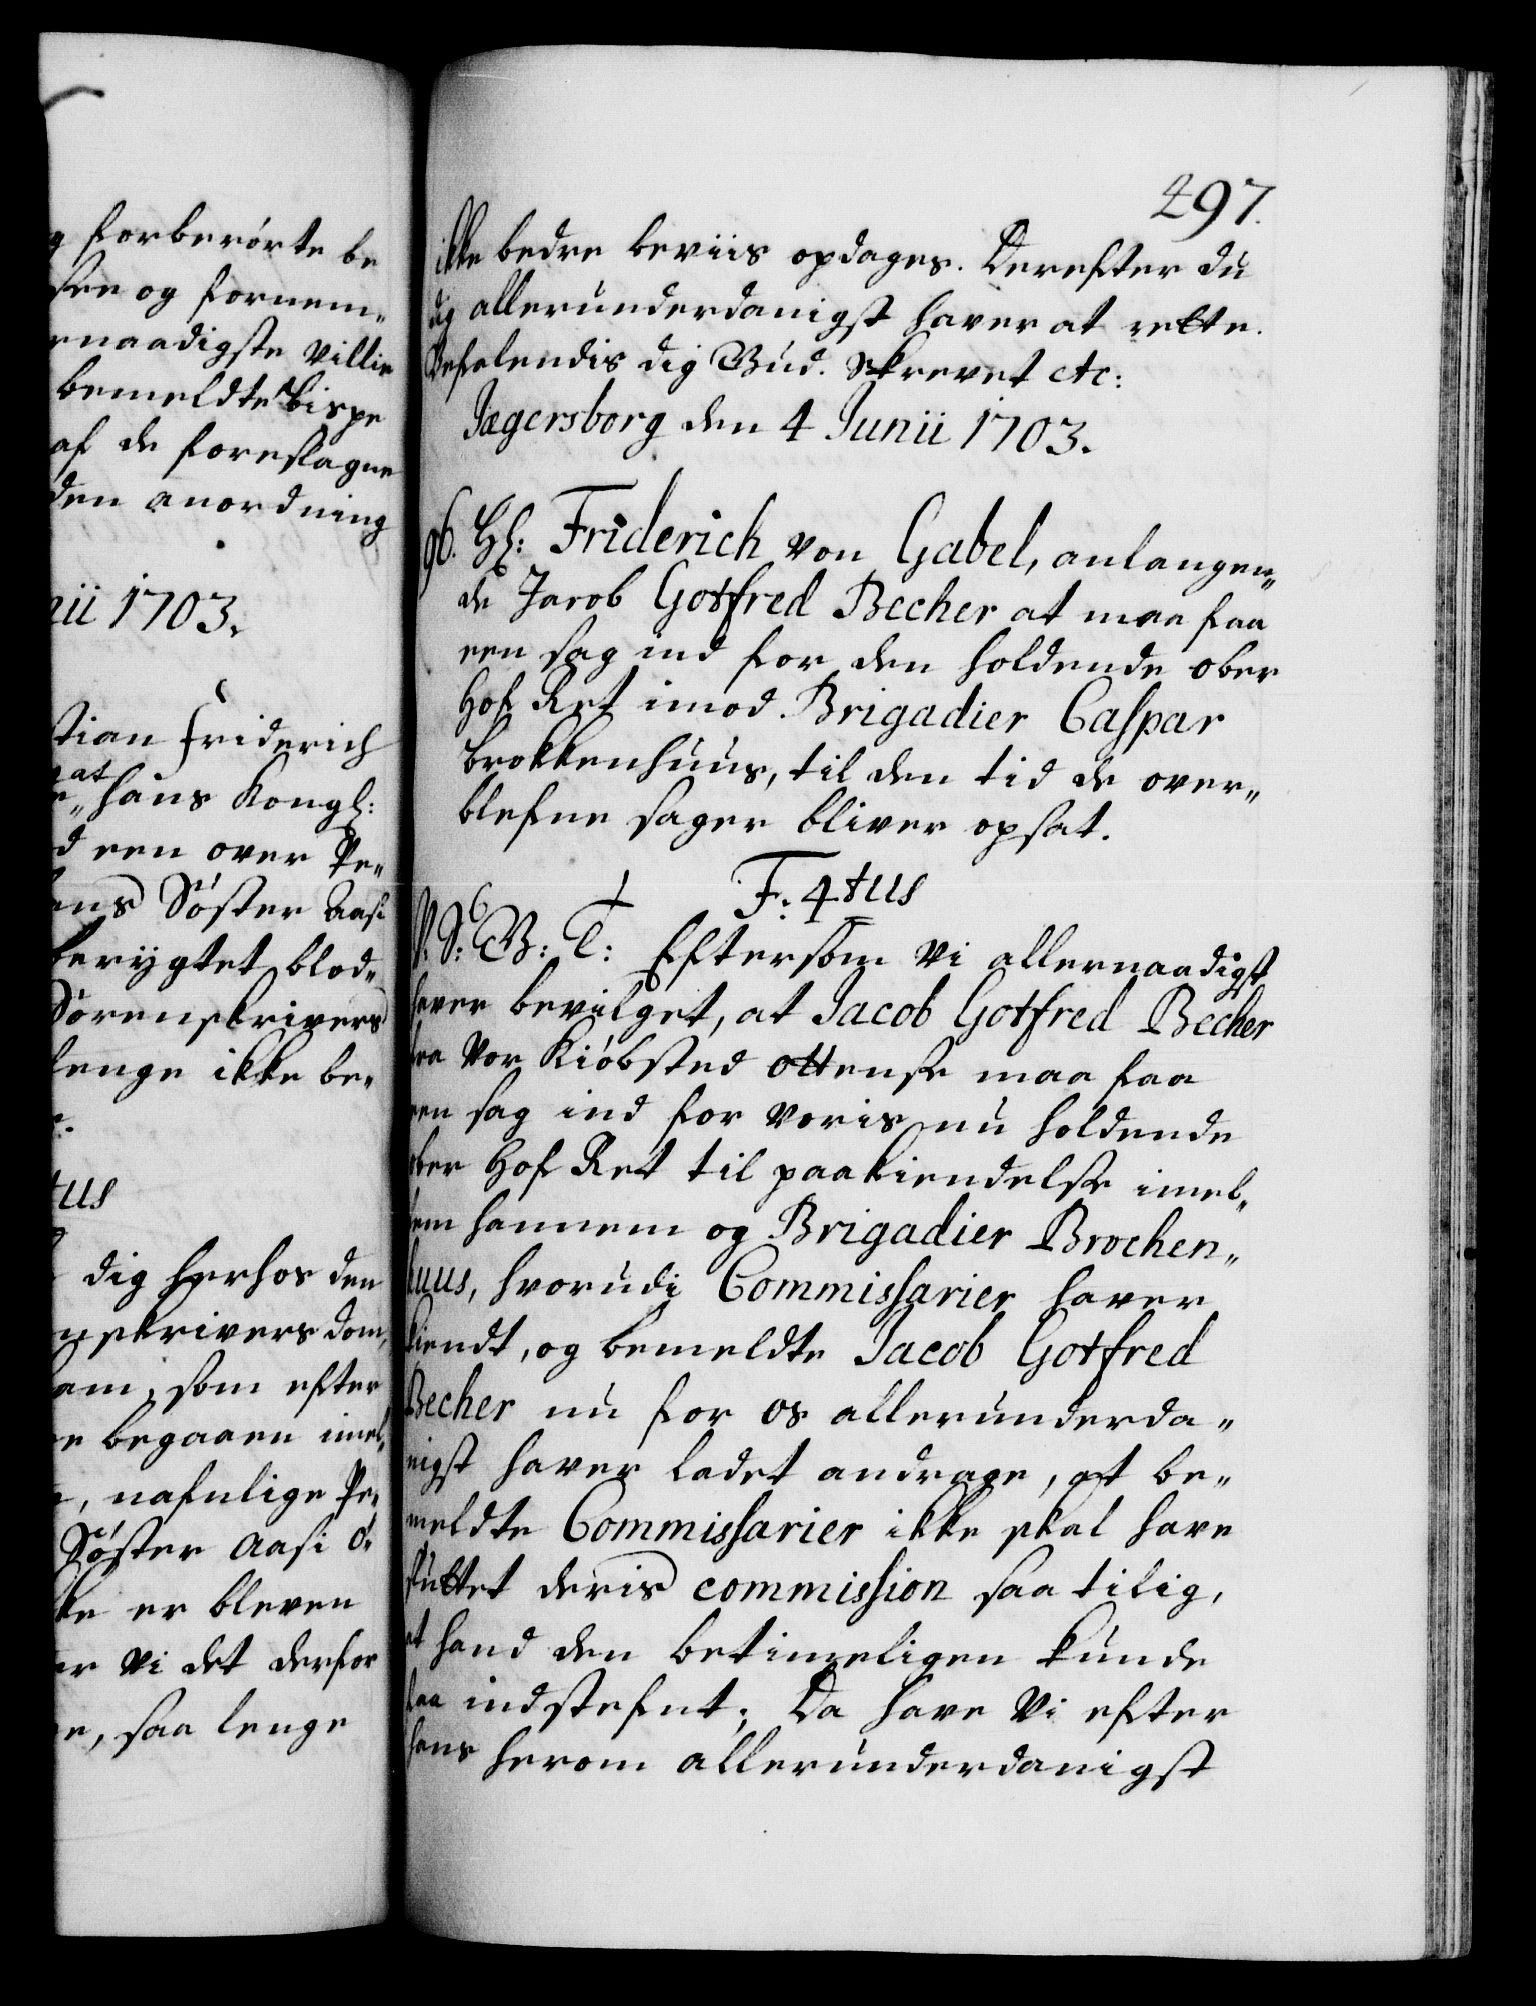 forberørte be
see og fornem„
naadigste villie
bemeldte Bispe
af de foreslagne
den anordning
nii 1703.
stian Friderich
at
hans Kongl:
d een over Pe„
ens Søster Aasi
berygtet blod„
Sorenskrivers
lenge ikke be„
tus
dig herhos den
skrivers dom,
som efter
begaaen imel„
, nafnlige Pe„
Søster Aasi O„
ke er bleven
er Vi det derfor
e, saa lenge
497.
ikke bedre beviis opdages. Derefter du
dig allerunderdanigst haver at rette.
Befalendis dig Gud. Skrevet etc:
Jægersborg den 4 Junii 1703.
96. Hr: Friderich von Gabel, anlangen„
de Jacob Gotfred Becher at maa faa
een sag ind for den holdende ober
Hof Ret imod Brigadier Caspar
Brokkenhuus, til den tid de over„
blefne sager bliver opsat.
F: 4tus
V. S: G: T: Eftersom Vi allernaadigst
haver bevilget, at Jacob Gotfred Becher
fra Vor Kiøbsted Ottense maa faa
een sag ind for Voris nu holdende
ober Hof Ret til paakiendelse imel„
lem hannem og Brigadier Brochen„
huus, hvorudi Commissarier haver
kiendt, og bemeldte Jacob Gotfred
Becher nu for os allerunderda„
nigst haver ladet andrage, at be„
meldte Commissarier ikke skal have
sluttet deris commission saa tilig,
at hand den betimeligen kunde
faa indstefnt; Da have Vi efter
hans herom allerunderdanigst